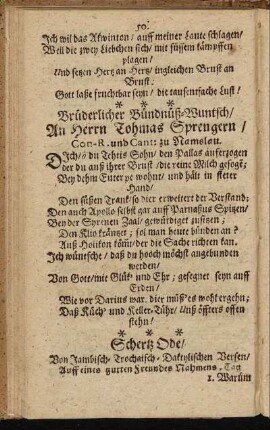 50.
Ich wil das Akwinton / auff meiner Laute schlagen /
Weil die zwey Liebchen sich / mit süssem kämpffen
plagen /
Und setzen Hertz an Hertz / ingleichen Brust an
Brust.
Gott laße fruchtbar seyn / die tausentfache Lust /
* * *
Brüderlicher Bündnüß-Wuntsch /
An Herrn Tohmas Sprengern /
Con-R. und Cant: zu Namslou.
DIch / ô du Tehtis Sohn / den Pallas aufferzogen
der du auß ihrer Brust / die reine Milch gesogt;
Bey dehm Euterpe wohnt / und hält in steter
Hand /
Den süßen Trank / so dier erweitert der Verstand;
Den auch Apollo selbst gar auff Parnassus Spitzen /
Bey der Syrenen Zoal / gewürdiget zusitzen;
Den Klio kräntzet; sol man heute bünden an?
Auß Holikon köm / der die Sache richten kan.
Ich wüntsche / daß du hooch möchst angebunden
werden /
Von Gott / mit Glük und Ehr; gesegnet seyn auff
Erden /
Wie vor Darius war. dier müß' es wohl ergehn;
Daß Küch' und Keller-Tühr / Unß öffters offen
stehn /
* * *
Schertz Ode /
Von Jambisch- Trochaisch- Daktylischen Versen /
Auff eines gurten Freundes Nahmens-Tag
1. Warüm